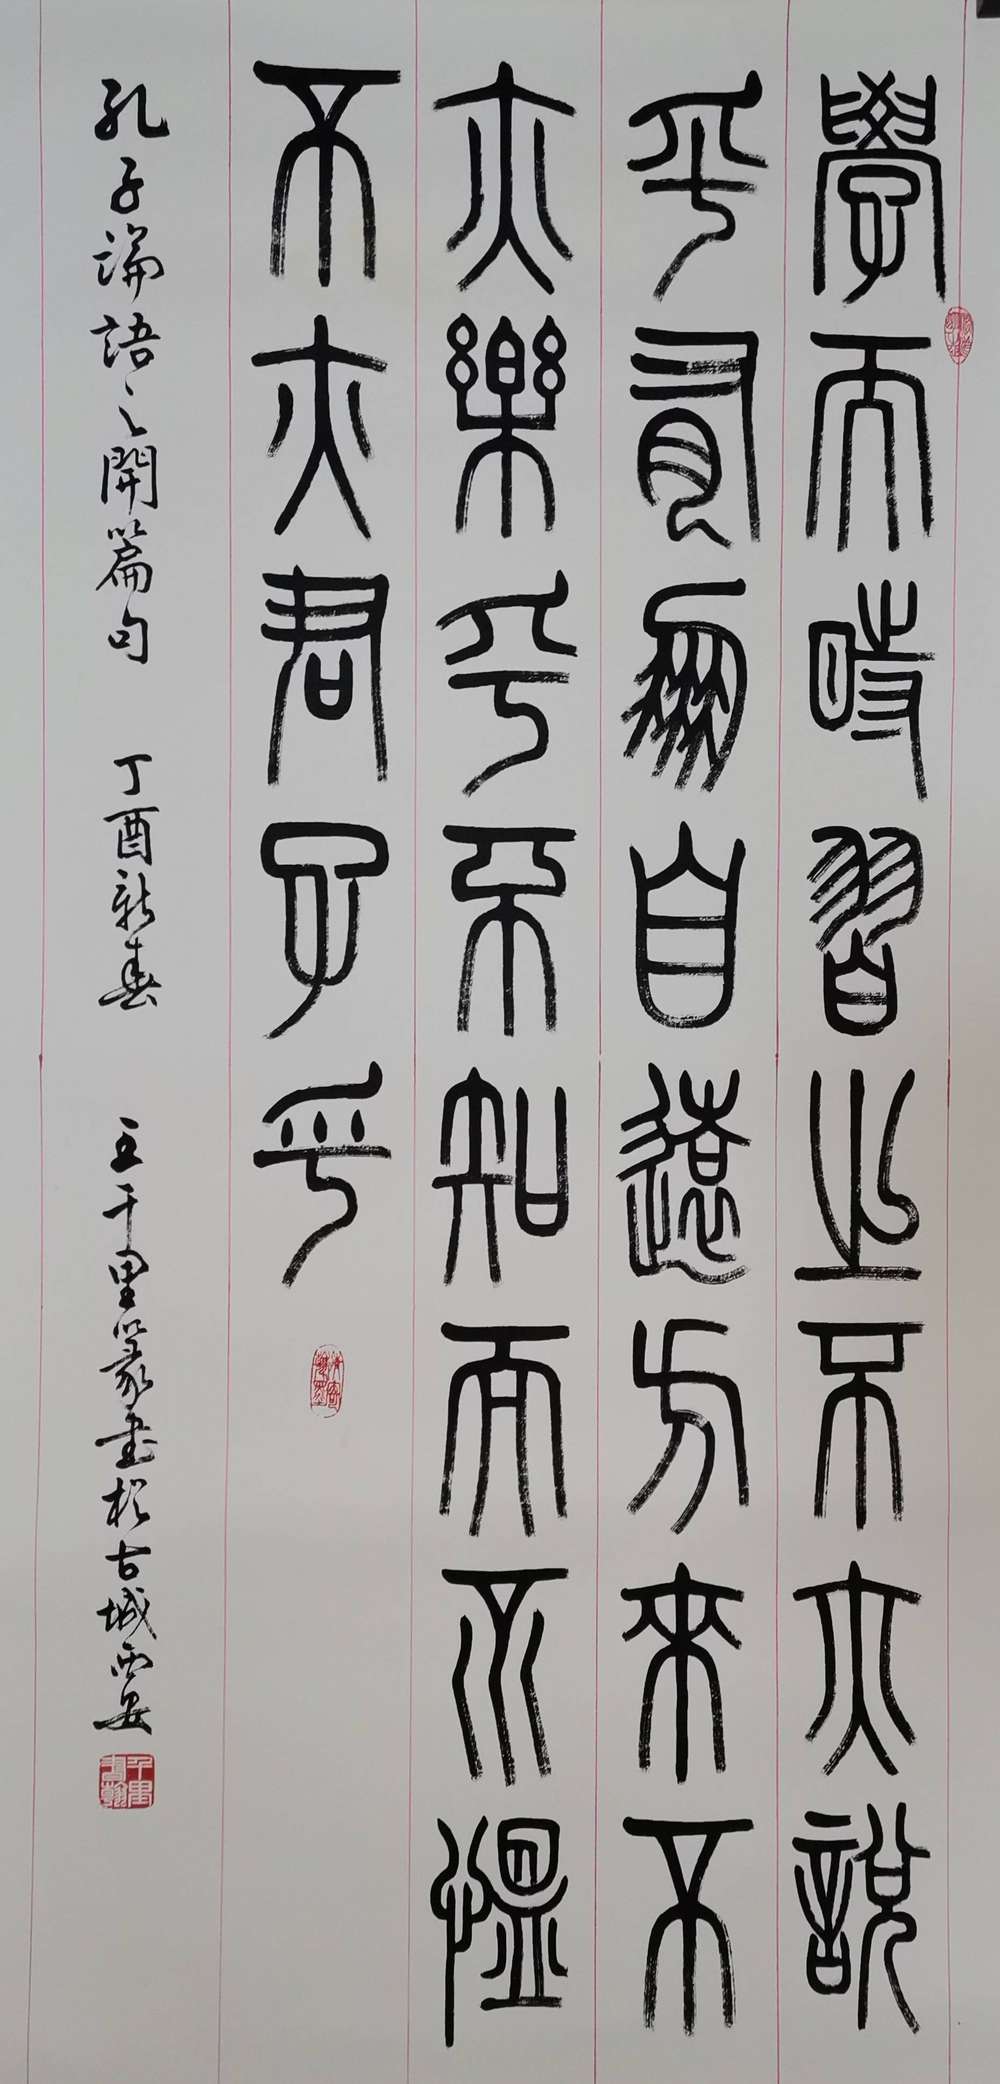 學而時習之不亦說
乎有朋自遠方來不
亦樂乎人不知而不慍
不亦君子乎
孔子論語之開篇句 丁酉新春 王千里篆書於古城西安